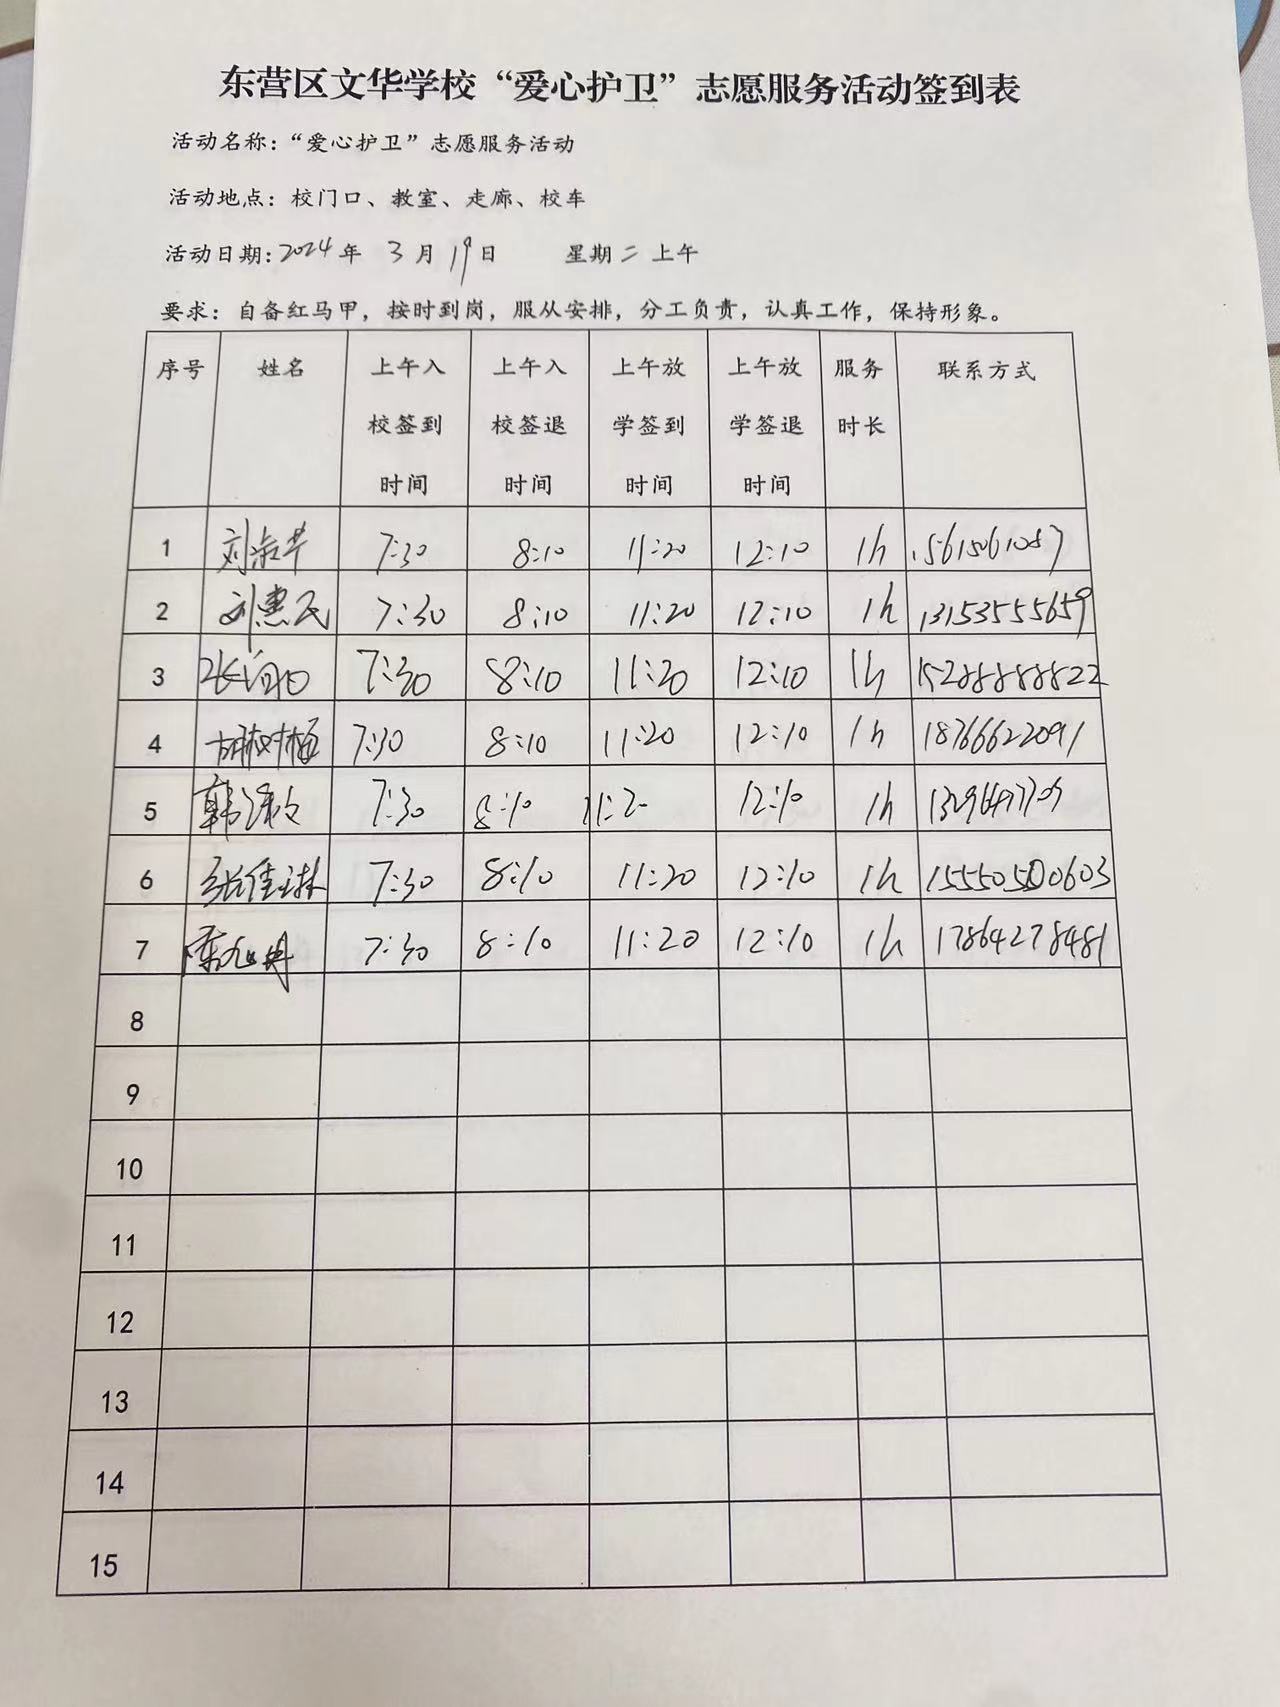 东营区文华学校“爱心护卫”志愿服务活动签到表
活动名称：“爱心护卫”志愿服务活动
活动地点：校门口、教室、走廊、校车
活动日期：2024年 3月19日 星期二 上午
要求：自备红马甲，按时到岗，服从安排，分工负责，认真工作，保持形象。
序号 姓名 上午入校签到时间 上午入校签退时间 上午放学签到时间 上午放学签退时间 服务时长 联系方式
1 7:30 8:10 11:20 12:10 1h
2 刘惠民 7:30 8:10 11:20 12:10 1h 13153555659
3 7:30 8:10 11:20 12:10 1h
4 胡树梅 7:30 8:10 11:20 12:10 1h 18766622091
5 7:30 8:10 11:20 12:10 1h
6 张佳琳 7:30 8:10 11:20 12:10 1h 15550500603
7 7:30 8:10 11:20 12:10 1h 17864278481
8
9
10
11
12
13
14
15